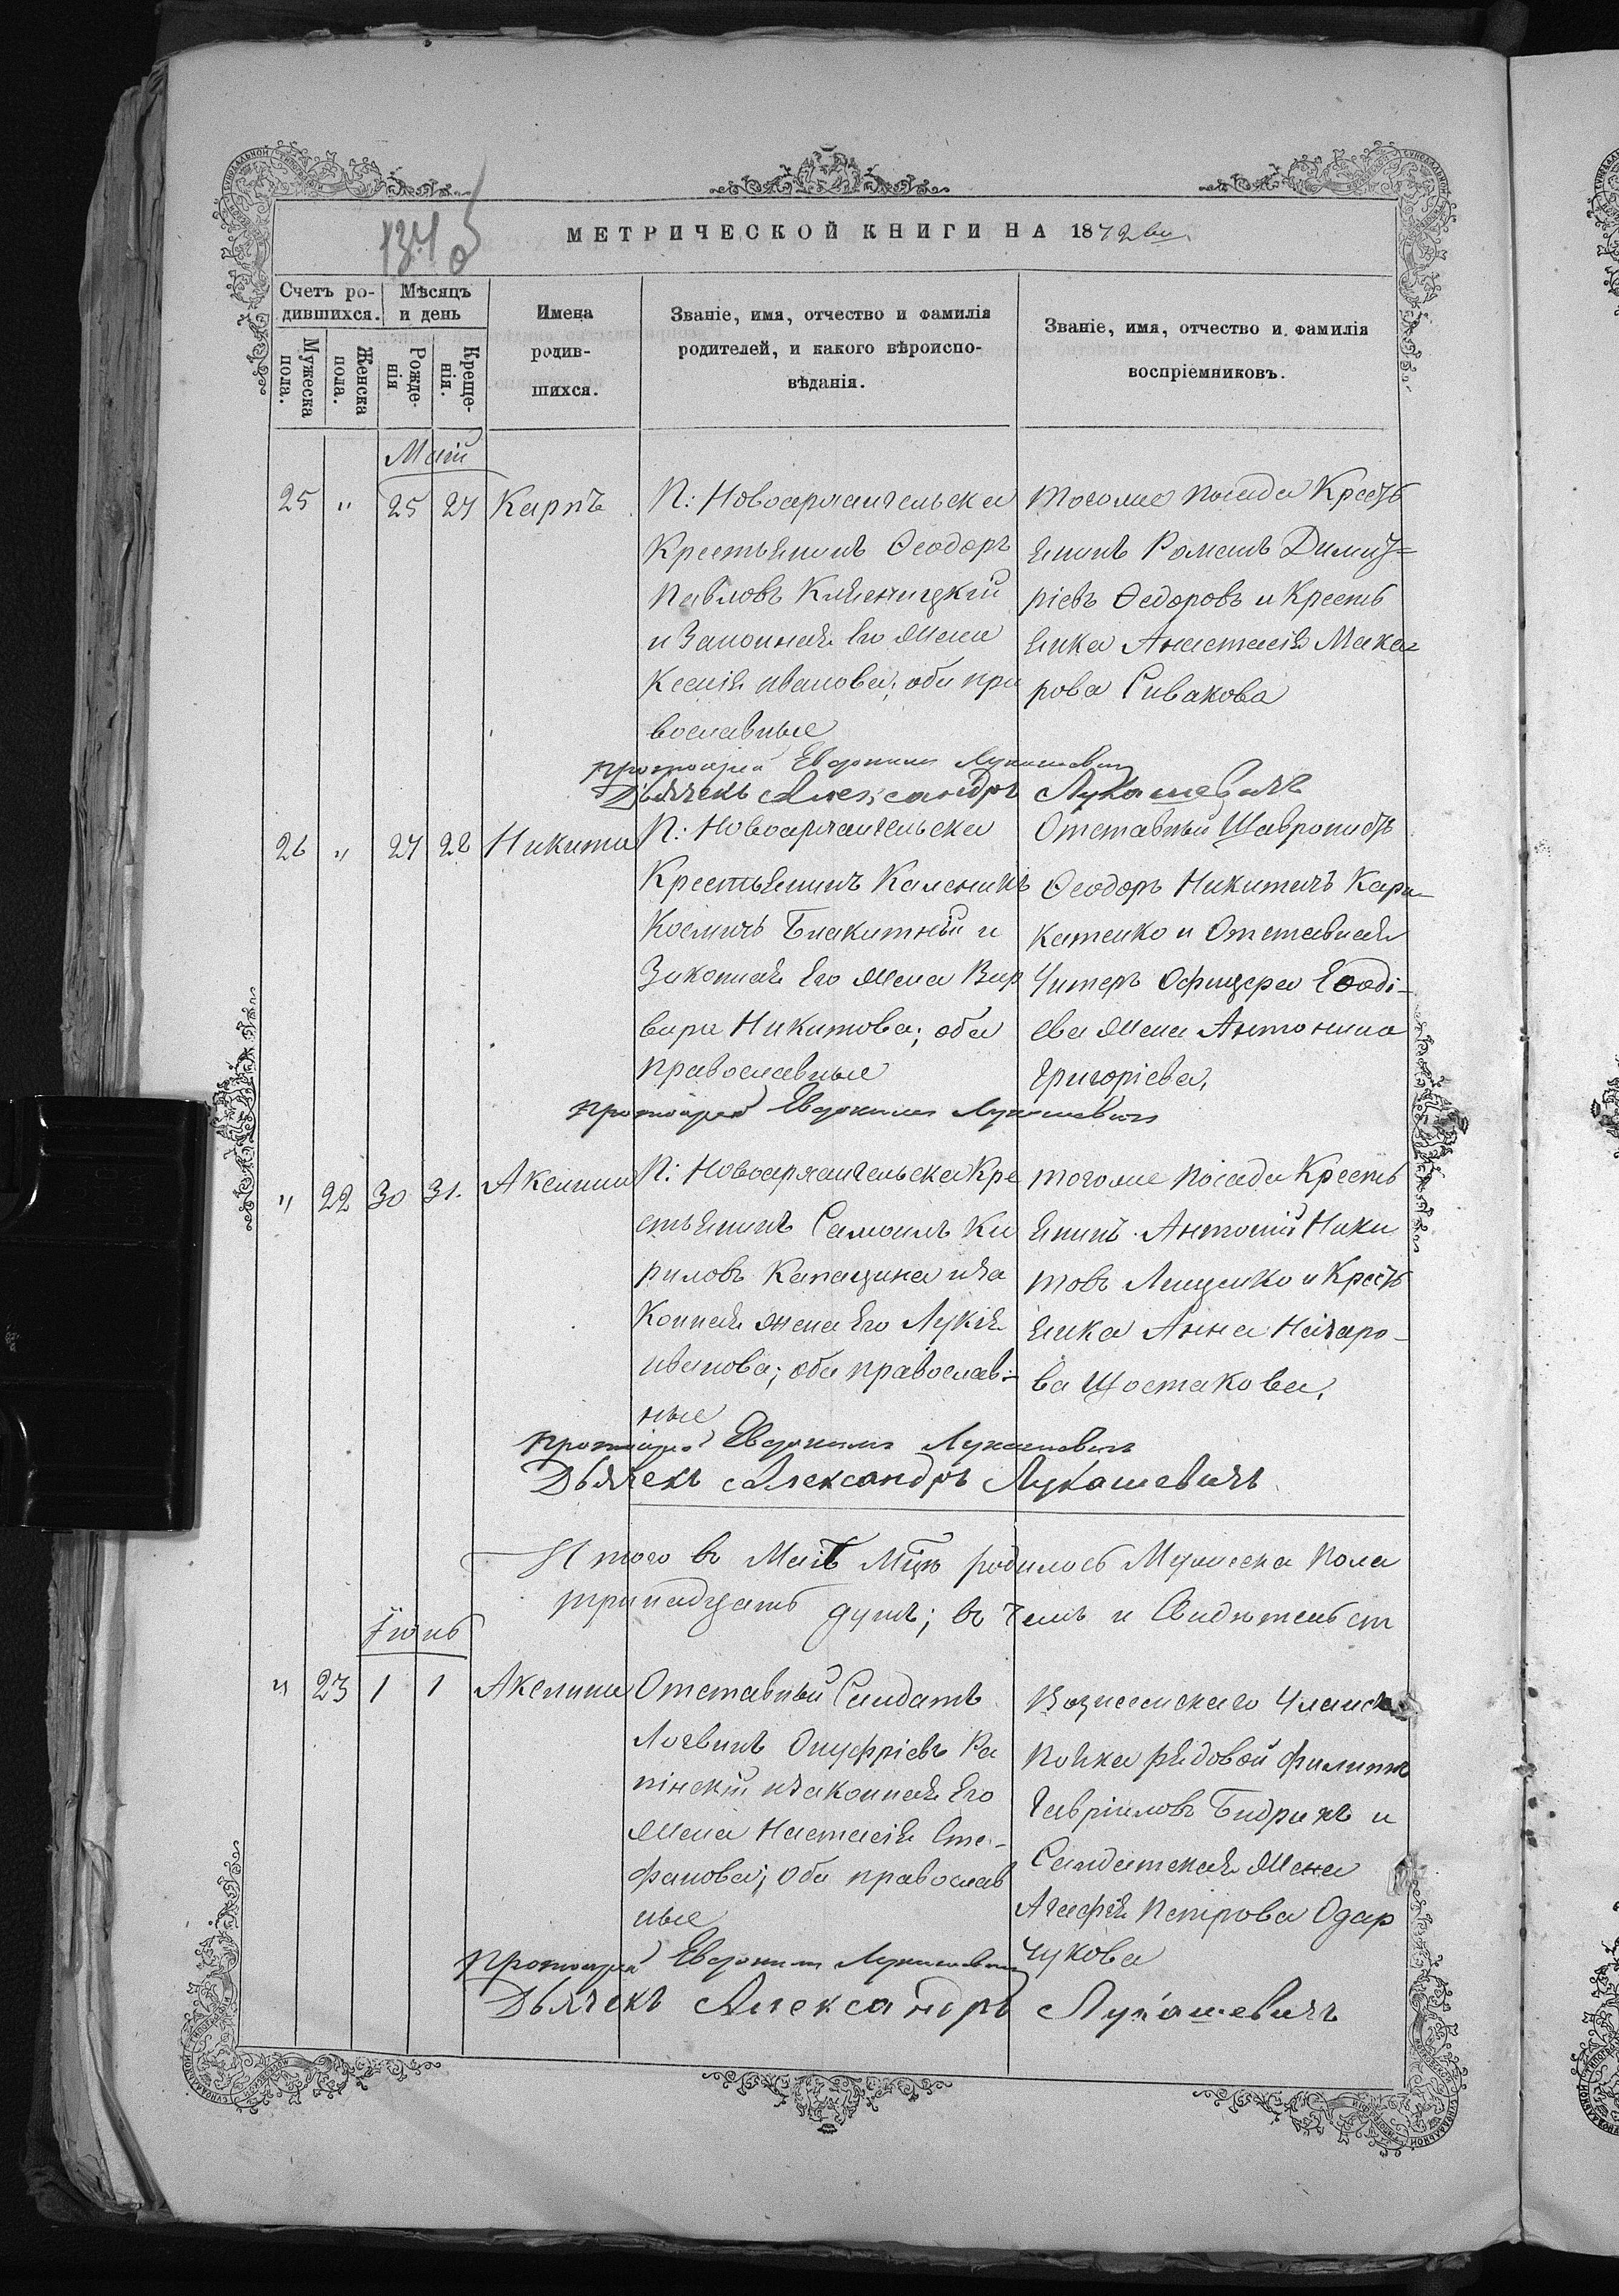 134 об
МЕТРИЧЕСКОЙ КНИГИ НА 1872 годъ
Счетъ ро-
дившихся.
Мѣсяцъ
и день
Мужеска
пола.
Женска
пола.
Рожде-
нія
Креще-
нія.
Имена
родив-
шихся.
Званіе, имя, отчество и фамилія
родителей, и какого вѣроиспо-
вѣданія.
Званіе, имя, отчество и фамилія
воспріемниковъ.
Май
25 " 25 27 Карпъ
П: Новоархангельска
Крестьянинъ Ѳеодоръ
Павловъ
и Законная его жена
Ксенія Иванова; оба пра
вославные
тогоже посада Кресть
янинъ Романъ Димит=
ріевъ Ѳедоровъ и Кресть
янка Анастасія Мака=
рова Сивакова
Протоіерей Евдокимъ Лукашевичъ
Дьячекъ Александръ Лукашевичъ
26 " 27 28 Никита
П: Новоархангельска
Крестьянинъ Каленикъ
Космичъ Блакитный и
Законная Его жена Вар
вара Никитова; оба
православные
Отставный
Ѳеодоръ Никитичъ Кара-
катенко и Отставная
Унтеръ Офицера
ева жена Антонина
Григоріева,
Протоіерей Евдокимъ Лукашевичъ
" 22 30 31. Аксинія
П: Новоархангельска Кре
стьянинъ Самоилъ Ки
риловъ Капацина и за
конная жена Его Лукія
Иванова; оба православ=
ные
тогоже посада Кресть
янинъ Антоній Ники
товъ Лищенко и Кресть
янка Анна Назаро-
ва Шостакова,
Протоіерей Евдокимъ Лукашевичъ
Дьячекъ Александръ Лукашевичъ
Итого въ Маѣ Мцѣ родилось Мужеска пола
тринадцать душъ; въ чемъ и Свидѣтельст
Іюнь
" 23 1 1 Аксинія
Отставный Салдатъ
Логвинъ Онуфріевъ Ра
пінскій и законная Его
жена Настасія Сте-
фанова; оба православ
ные
Вознесенскаго Уланск
Полка рядовой Филиппъ
Гавріиловъ и
Салдатская жена
Агафія Петрова Одар
чукова
Протоіерей Евдокимъ Лукашевичъ
Дьячекъ Александръ Лукашевичъ